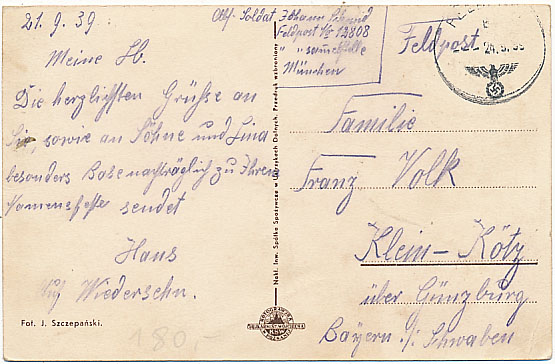 21. 9. 39.
Meine Lb.
Die herzlichsten Grüße an
Sie, sowie an Söhne und Lina
besonders Base nachträglich zu Ihrem
Namensfeste sendet
Hans
Auf Wiedersehn.
Fot. J. Szczepański.
180,-
Abs. Soldat Johann Schmid
Feldpost No 12808
München
Feldpost
24. 9. 39
Familie
Franz Volk
Klein-Kötz
über Günzburg
Bayern /: Schwaben
Nakł. Inw. Spółka Spożywcza w Uzdrowisk. Przedruk wzbroniony